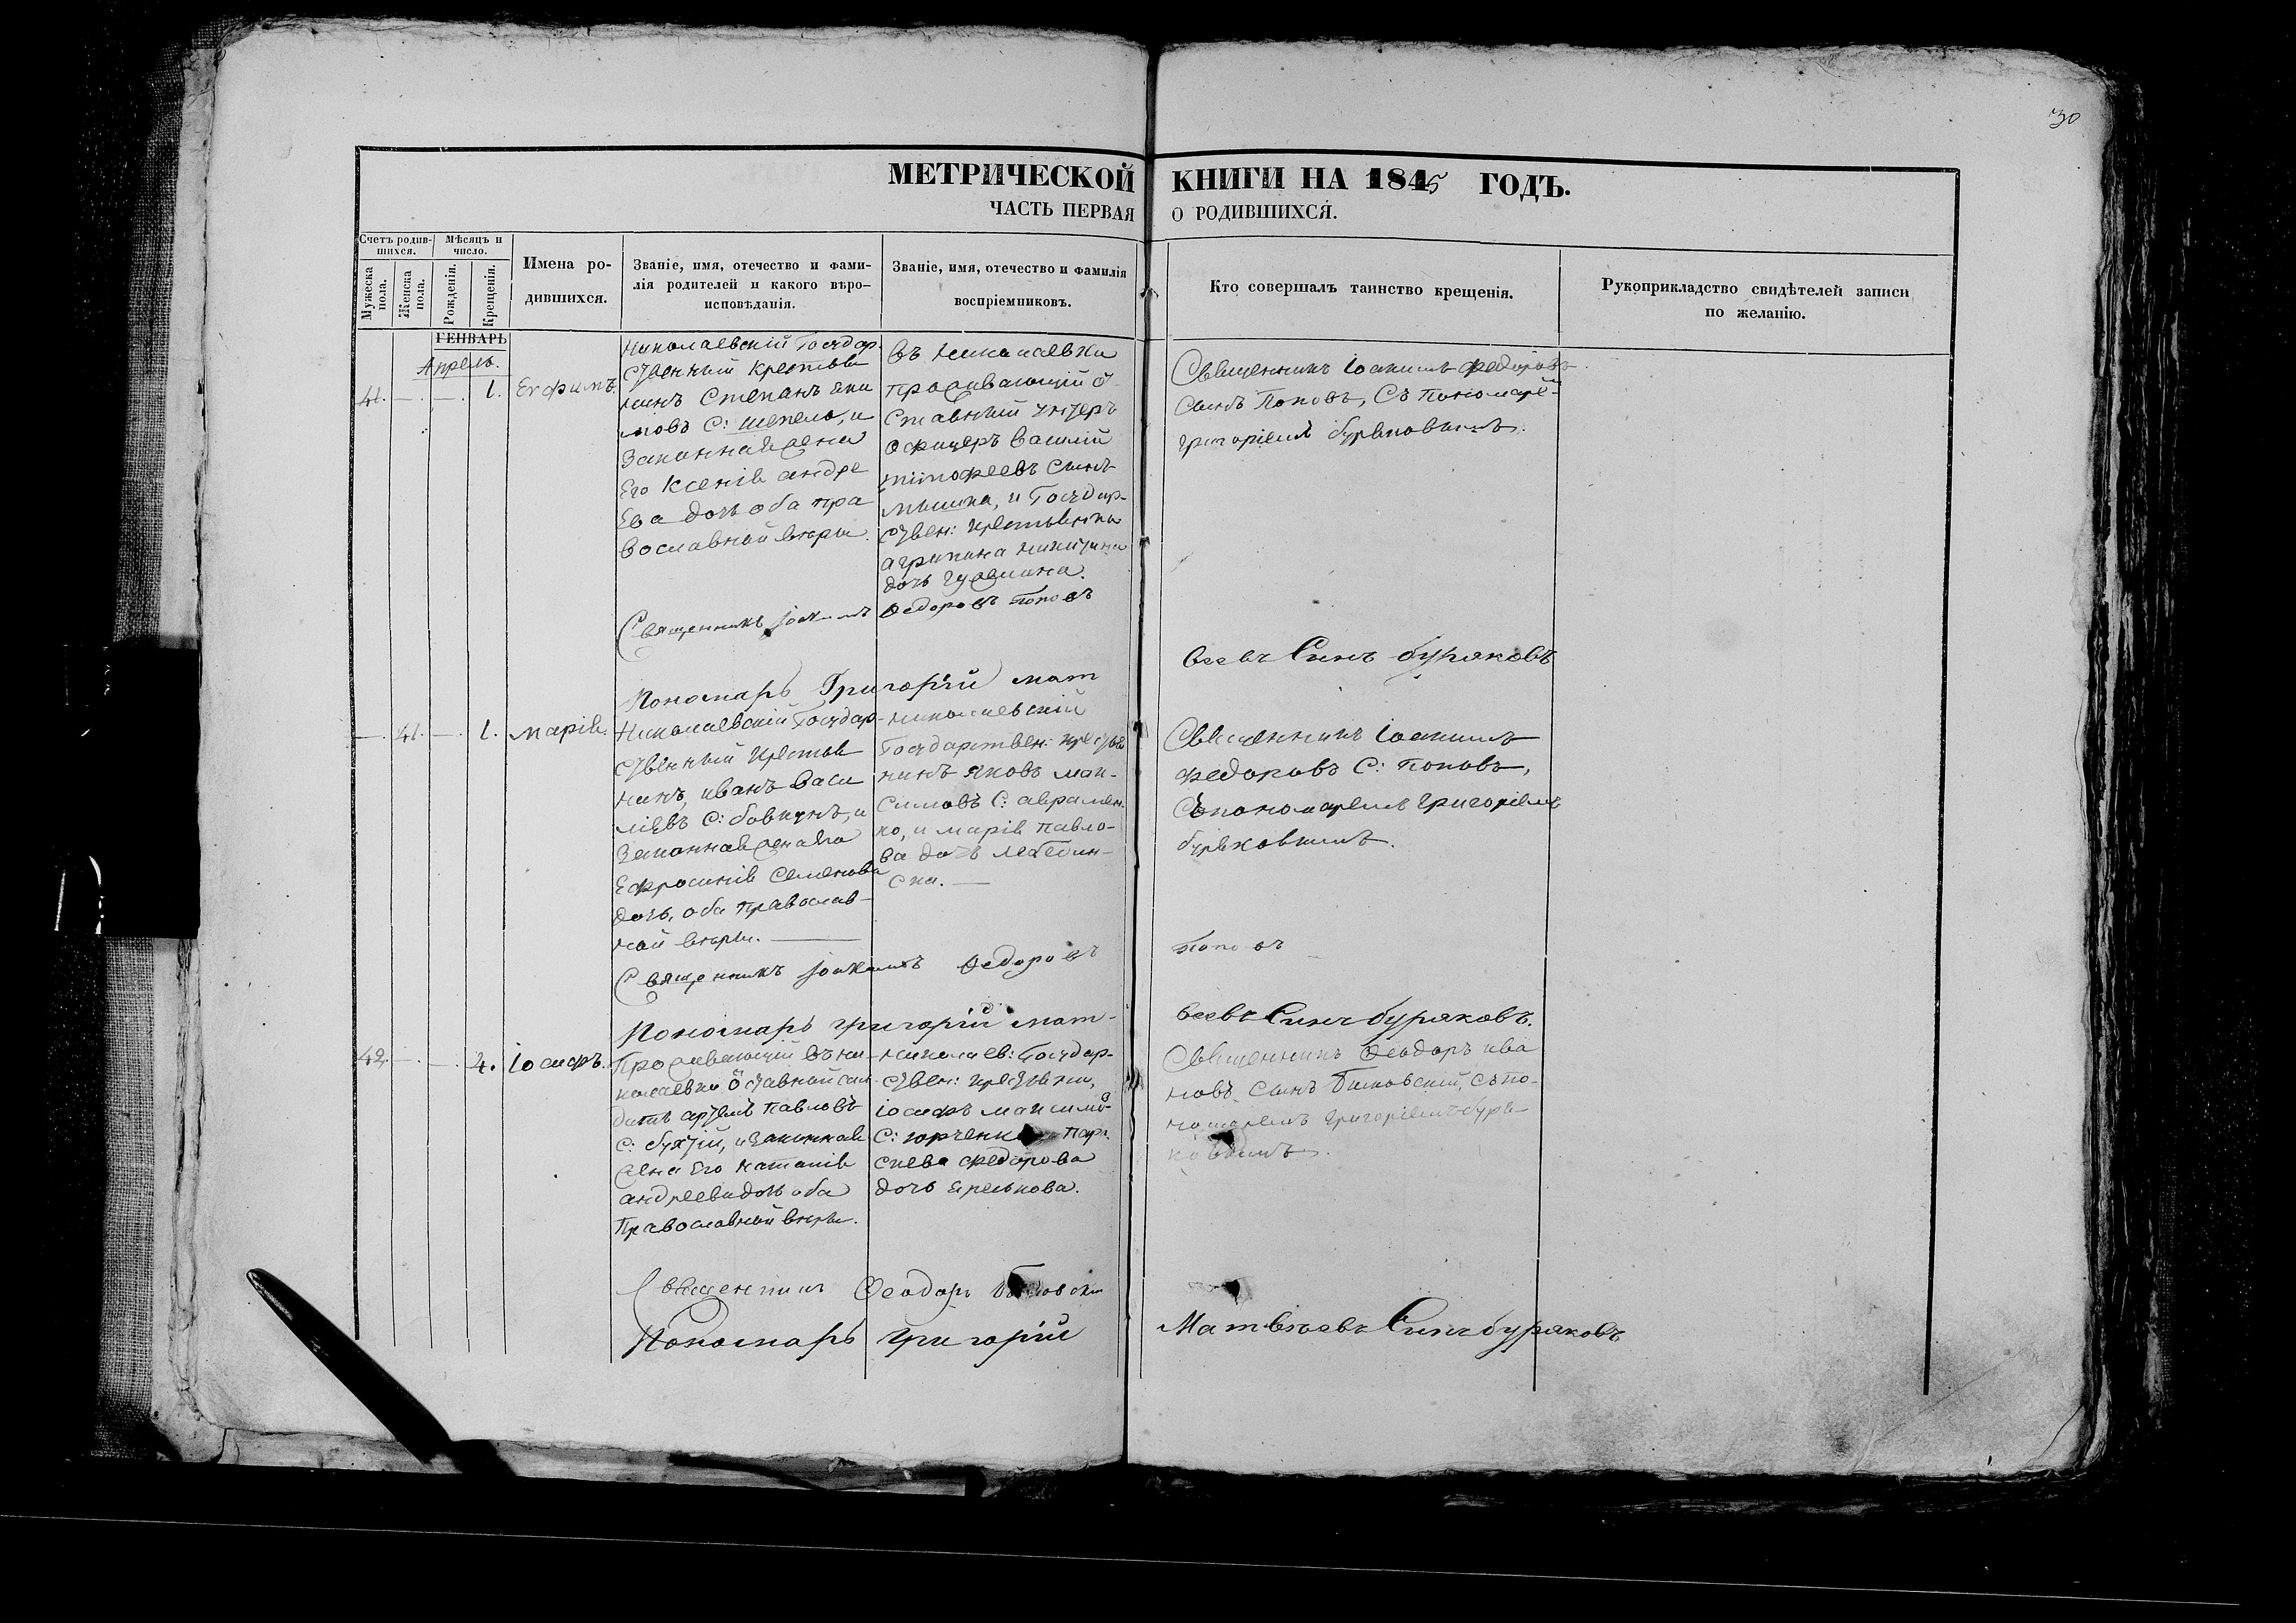 30
МЕТРИЧЕСКОЙ КНИГИ НА 1845 ГОДЪ.
ЧАСТЬ ПЕРВАЯ О РОДИВШИХСЯ.
Счетъ родив-
шихся.
Мѣсяцъ и
число.
Мужеска
пола.
Женска
пола.
Рожденія.
Крещенія.
Имена ро-
дившихся.
Званіе, имя, отечество и фами-
лія родителей и какого вѣро-
исповѣданія.
Званіе, имя, отечество и фамилія
воспріемниковъ.
Кто совершалъ таинство крещенія.
Рукоприкладство свидѣтелей записи
по желанію.
ГЕНВАРЬ
Апрель.
41. — — 1. Ефимъ.
Николаевскій Государ-
ственный крестья
нинъ Степанъ Яки
мовъ С: Шепель, и
Законная жена
Его Ксенія андре
Ева дочь оба пра
вославной вѣры.
въ Николаевки
проживающій О
ставный унтеръ
офицеръ Василій
тимофеевъ Сынъ
мышка, и Государ-
ствен: крестьянка
агрипина никитина
дочь
Священникъ Іоакимъ Федоровъ
Сынъ Поповъ, Съ пономаре-
Григоріемъ буряковымъ.
Священникъ Іоакимъ Федоровъ Поповъ
Пономарь Григорій мат
веевъ Сынъ буряковъ
— 41. — 1. марія.
Николаевскій Государ-
ственный крестья
нинъ, иванъ Васи
ліевъ С: бовкунъ, и
Законная жена его
Ефросинія Семенова
дочь, оба Православ-
ной вѣры. —
николаевскій
Государствен: крестья
нинъ Яковъ мак-
симовъ С: аврамен
ко, и марія павло-
ва дочь лебедин-
ска. —
Священникъ Іоакимъ
федоровъ С: поповъ,
Съ пономаремъ Григоріемъ
буряковымъ.
Священникъ Іоакимъ Федоровъ Поповъ
Пономарь григорій мат-
веевъ Сынъ буряковъ.
42. — — 4. Іосифъ.
Проживающій въ ни-
колаевки Оставной сол
датъ артемъ павловъ
С: бухтій, и законная
жена Его наталія
андреева дочь оба
Православной вѣры.
николаев: Государ-
ствен: крестьяни,
Іосифъ максимо-
С: юрченк пара
скева федорова
дочь
Священникъ Феодоръ ива
новъ Сынъ Съ по-
номаремъ григоріемъ буря
ковымъ.
Священникъ Феодоръ
Пономарь григорій
Матвѣевъ Сынъ буряковъ